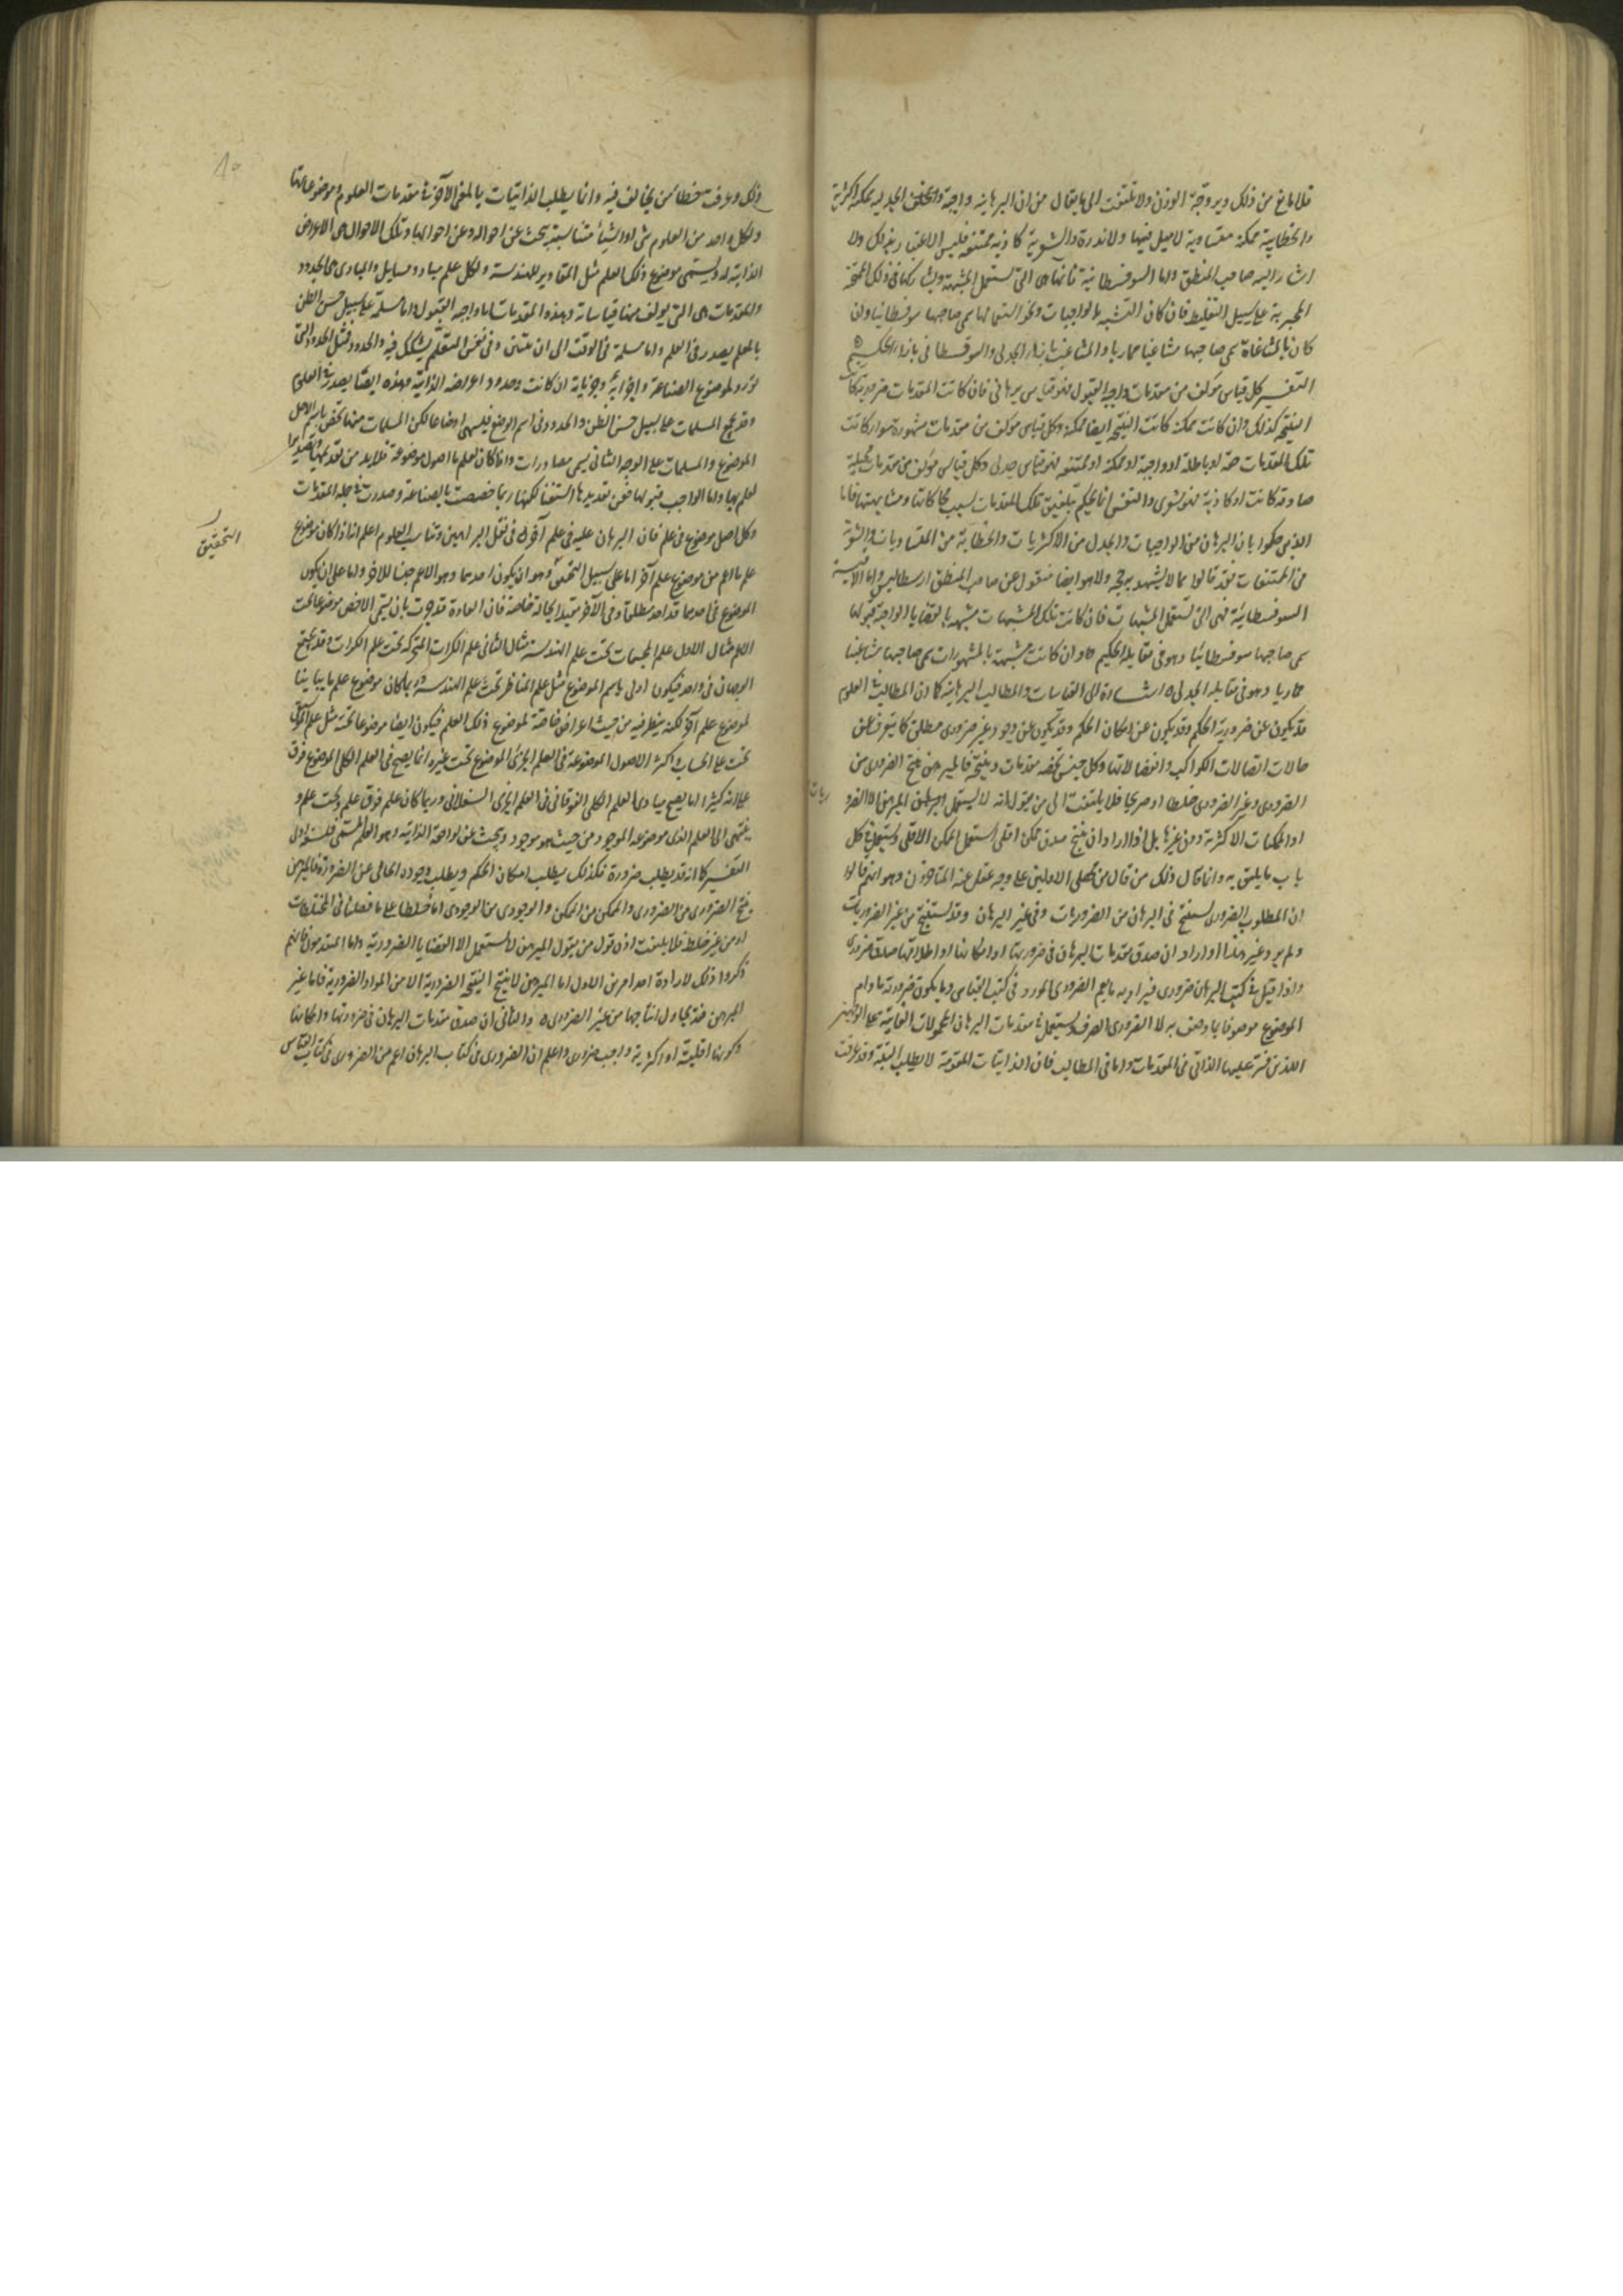 قلا مانع من ذلك ويروجة الوزن ولا تلتفت الى ما يقال من ان البرهانية واجبة والجدلية ممكنة اكثرية
والخطابية ممكنة متساوية لا ميل فيها ولا ندرة والشعرية كاذبة ممتنعة فليس الاعتبار بذلك ولا
اشار اليه صاحب المنطق واما السوفسطائية فانها هى التى تستعمل المشبهة ويشاركها فى ذلك الممتحنة
المجربة على سبيل التغليط فان كان التشبيه بالواجبات ونحو استعمالها سمى صاحبها سوفسطائيا وان
كان بالمشهورات سمى صاحبها مشاغبا مماريا والمشاغب بازاء الجدلى والسوفسطائى بازاء الحكيم
التفسير كل قياس مؤلف من مقدمات واجبة القبول فهو قياس برهانى فان كانت المقدمات ضرورية كانت
النتيجة كذلك وان كانت ممكنة كانت النتيجة ايضا ممكنة وكل قياس مؤلف من مقدمات مشهورة سواء كانت
تلك المقدمات حقة او باطلة او واجبة او ممكنة او ممتنعة فهو قياس جدلى وكل قياس مؤلف من مقدمات مخيلة
صادقة كانت او كاذبة فهو شعرى والنفس انما يحكم بتلفيق تلك المقدمات بسبب محاكاتها ومشابهتها فاما
الذين حكموا بان البرهان من الواجبات والجدل من الاكثريات والخطابة من المتساويات والشعرية
من الممتنعات فقد قالوا ما لا يشهد به حجة ولا هو ايضا منقول عن صاحب المنطق ارسطاليس واما الاقيسة
السوفسطائية فهى التى تستعمل المشبهات فان كانت تلك المشبهات مشبهة بالقضايا الواجبة قبولها
سمى صاحبها سوفسطائيا وهو فى مقابلة الحكيم وان كانت مشبهة بالمشهورات سمى صاحبها مشاغبا
مماريا وهو فى مقابلة الجدلى اشارة الى القياسات والمطالب البرهانية كما ان المطالب فى العلوم
قد يكون عن ضرورية الحكم وقد يكون عن امكان الحكم وقد يكون عن وجود غير ضرورى مطلق كما يتعرف عن
حالات اتصالات الكواكب وانفصالاتها وكل جنس تخصه مقدمات ونتيجة فالمبرهن ينتج الضرورى من
الضرورى وغير الضرورى خلطا او صريحا فلا يلتفت الى من يقول انه لا يستعمل المبرهن الا الضروريات
او الممكنات الاكثرية دون غيرها بل اذا اراد ان ينتج صدق ممكن اقلى استعمل الممكن الاقلى ويستعمل فى كل
باب ما يليق به وانما قال ذلك من قال من محصلى الاولين على وجه غفل عنه المتاخرون وهو انهم قالوا
ان المطلوب الضرورى يستنتج فى البرهان من الضروريات وفى غير البرهان وقد يستنتج من غير الضروريات
ولم يرد غير هذا او اراد ان صدق مقدمات البرهان فى ضرورتها او امكانها او اطلاقها صدق ضرورى
واذا قيل فى كتب البرهان ضرورى فيراد به ما يعم الضرورى المورد فى كتب القياس وما يكون ضرورته ما دام
الموضوع موصوفا بما وصف به لا الضرورى الصرف ويستعمل فى مقدمات البرهان المحمولات الذاتية على الوجهين
اللذين فسر عليهما الذاتى فى المقدمات واما فى المطالب فان الذاتيات المقومة لا يطلب البتة وقد عرفت
ذلك وعرفت خطأ من يخالف فيه وانما يطلب الذاتيات بالمعنى الآخر فى مقدمات العلوم وموضوعاتها
ولكل واحد من العلوم شئ او اشياء متناسبة يبحث عن احواله وعن احوالها وتلك الاحوال هى الاعراض
الذاتية له ويسمى موضوع ذلك العلم مثل المقادير للهندسة ولكل علم مباد ومسايل والمبادى هى الحدود
والمقدمات هى التى يؤلف منها قياساته وهذه المقدمات اما واجبة القبول واما مسلمة على سبيل حسن الظن
بالمعلم يصدر فى العلم واما مسلمة فى الوقت الى ان يتبين وفى نفس المتعلم تشكك فيه والحدود فمثل الحدود التى
تورد لموضوع الصناعة واجزايه وجزياته ان كانت وحدود اعراضه الذاتية وهذه ايضا يصدر فى العلوم
وقد يجمع المسلمات على سبيل حسن الظن والحدود فى اسم الوضع فيسمى اوضاعا لكن المسلمات منها تختص باسم الاصل
الموضوع والمسلمات على الوجه الثانى يسمى مصادرات واذا كان لعلم ما اصول موضوعة فلا بد من تقديمها وتصدير
العلم بها واما الواجب قبولها فعن تعديدها استغنا لكنها ربما خصصت بالصناعة وصدرت فى جملة المقدمات
وكل اصل موضوع فى علم فان البرهان عليه فى علم آخر فى نقل البراهين وتناسب العلوم اعلم انه اذا كان موضوع
علم ما اعم من موضوع علم آخر اما على سبيل التحقيق وهو ان يكون احدهما وهو الاعم جنسا للاخر واما على ان يكون
الموضوع فى احدهما قد اخذ مطلقا وفى الآخر مقيدا بحالة خاصة فان العادة قد جرت بان يسمى الاخص موضوعا تحت
الاعم مثال الاول علم المجسمات تحت علم الهندسة مثال الثانى علم الكرات المتحركة تحت علم الكرات وقد يجتمع
الوجهان فى واحد فيكون اولى باسم الموضوع مثل علم المناظر تحت علم الهندسة وربما كان موضوع علم ما مباينا
لموضوع علم آخر لكنه ينظر فيه من حيث اعراض خاصة لموضوع ذلك العلم فيكون ايضا موضوعا تحته مثل علم الموسيقى
تحت علم الحساب واكثر الاصول الموضوعة فى العلم الجزئى الموضوع تحت غيره انما يصح فى العلم الكلى الموضوع فوق
على انه كثيرا اما يصح مبادى العلم الكلى الفوقانى فى العلم الجزئى السفلانى وربما كان علم فوق علم وتحت علم و
ينتهى الى العلم الذى موضوعه الموجود من حيث هو موجود ويبحث عن لواحقه الذاتية وهو العلم المسمى فلسفة اولى
التفسير كما انه قد يطلب ضرورة فكذلك يطلب امكان الحكم ويطلب وجوده الخالى عن الضرورة فالمبرهن
ينتج الضرورى من الضرورى والممكن من الممكن والوجودى من الوجودى اما خلطا على ما فصلنا فى المختلطات
او من غير خلط فلا يلتفت اذن قول من يقول المبرهن لا يستعمل الا القضايا الضرورية واما المتقدمون فانهم
ذكروا ذلك لارادة احد امرين الاول اما المبرهن لا ينتج النتيجة الضرورية الا من المواد الضرورية فاما غير
المبرهن فقد يحاول انتاجها من غير الضرورى والثانى ان صدق مقدمات البرهان فى ضرورتها وامكانها
وكونها اقلية او اكثرية واجب ضرورى واعلم ان الضرورى من كتاب البرهان اعم من الضرورى فى كتاب القياس
التحقيق